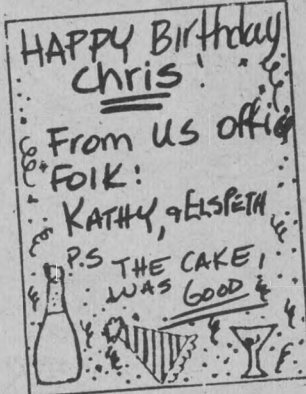 HAPPY Birthday
Chris!
From us office
FOlK:
KATHY, & ELSPETH
P.S THE CAKE,
WAS GOOD